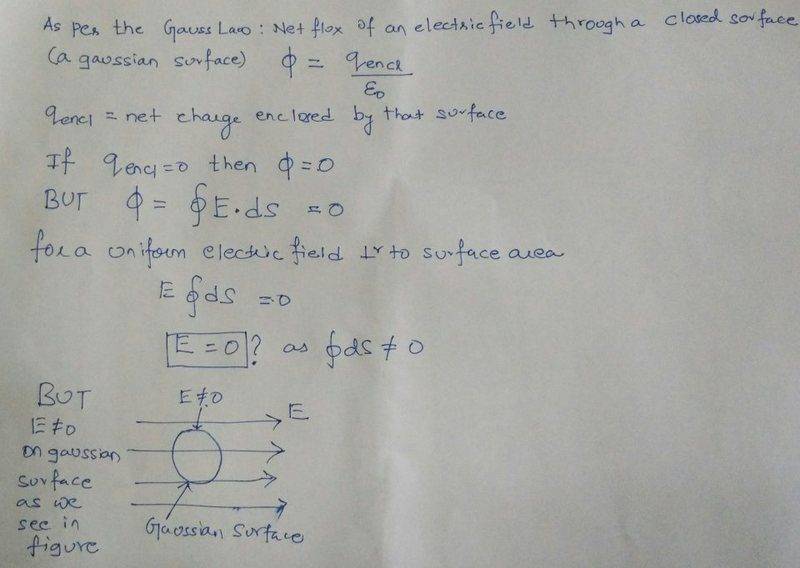 As per the Gauss Law : Net flux of an electric field through a closed surface
(a gaussian surface) ϕ = qencl / ε0
qencl = net charge enclosed by that surface
If qencl = 0 then ϕ = 0
BUT ϕ = ∮E.ds = 0
for a uniform electric field ⊥r to surface area
E ∮ds = 0
E = 0 ? as ∮ds ≠ 0
BUT
E ≠ 0
on gaussian
surface
as we
see in
figure
E ≠ 0
E
Gaussian Surface